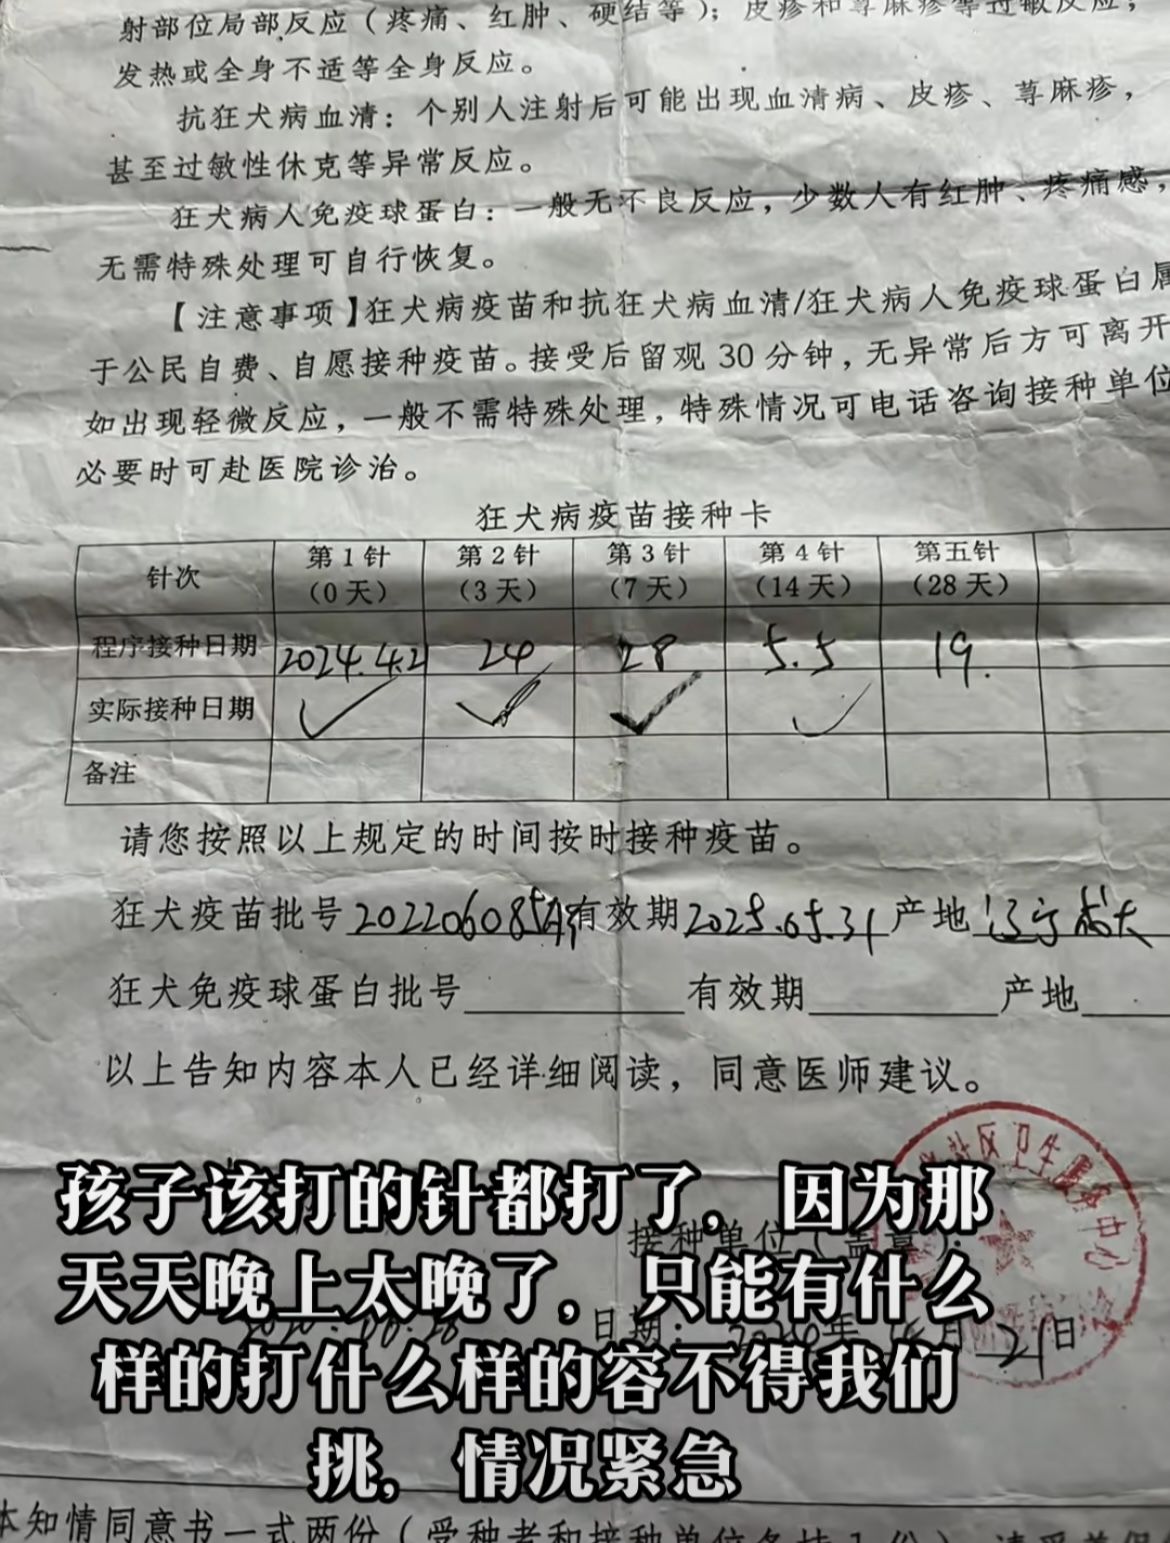 射部位局部反应（疼痛、红肿、硬结等）；皮疹和荨麻疹等过敏反应；
发热或全身不适等全身反应。
抗狂犬病血清：个别人注射后可能出现血清病、皮疹、荨麻疹，
甚至过敏性休克等异常反应。
狂犬病人免疫球蛋白：一般无不良反应，少数人有红肿、疼痛感，
无需特殊处理可自行恢复。
【注意事项】狂犬病疫苗和抗狂犬病血清/狂犬病人免疫球蛋白属
于公民自费、自愿接种疫苗。接受后留观 30 分钟，无异常后方可离开
如出现轻微反应，一般不需特殊处理，特殊情况可电话咨询接种单位
必要时可赴医院诊治。
狂犬病疫苗接种卡
针次 第 1 针（0 天） 第 2 针（3 天） 第 3 针（7 天） 第 4 针（14 天） 第五针（28 天）
程序接种日期 2024.4.21 24 28 5.5 19.
实际接种日期 ✓ ✓ ✓ ✓
备注
请您按照以上规定的时间按时接种疫苗。
狂犬疫苗批号 202206085 有效期 2025.05.31 产地 辽宁成大
狂犬免疫球蛋白批号 有效期 产地
以上告知内容本人已经详细阅读，同意医师建议。
社区卫生服务中心
接种单位（盖章）：
日期： 年 月 21日
孩子该打的针都打了。因为那
天天晚上太晚了，只能有什么
样的打什么样的容不得我们
挑，情况紧急
本知情同意书一式两份（受种者和接种单位各持 1 份）